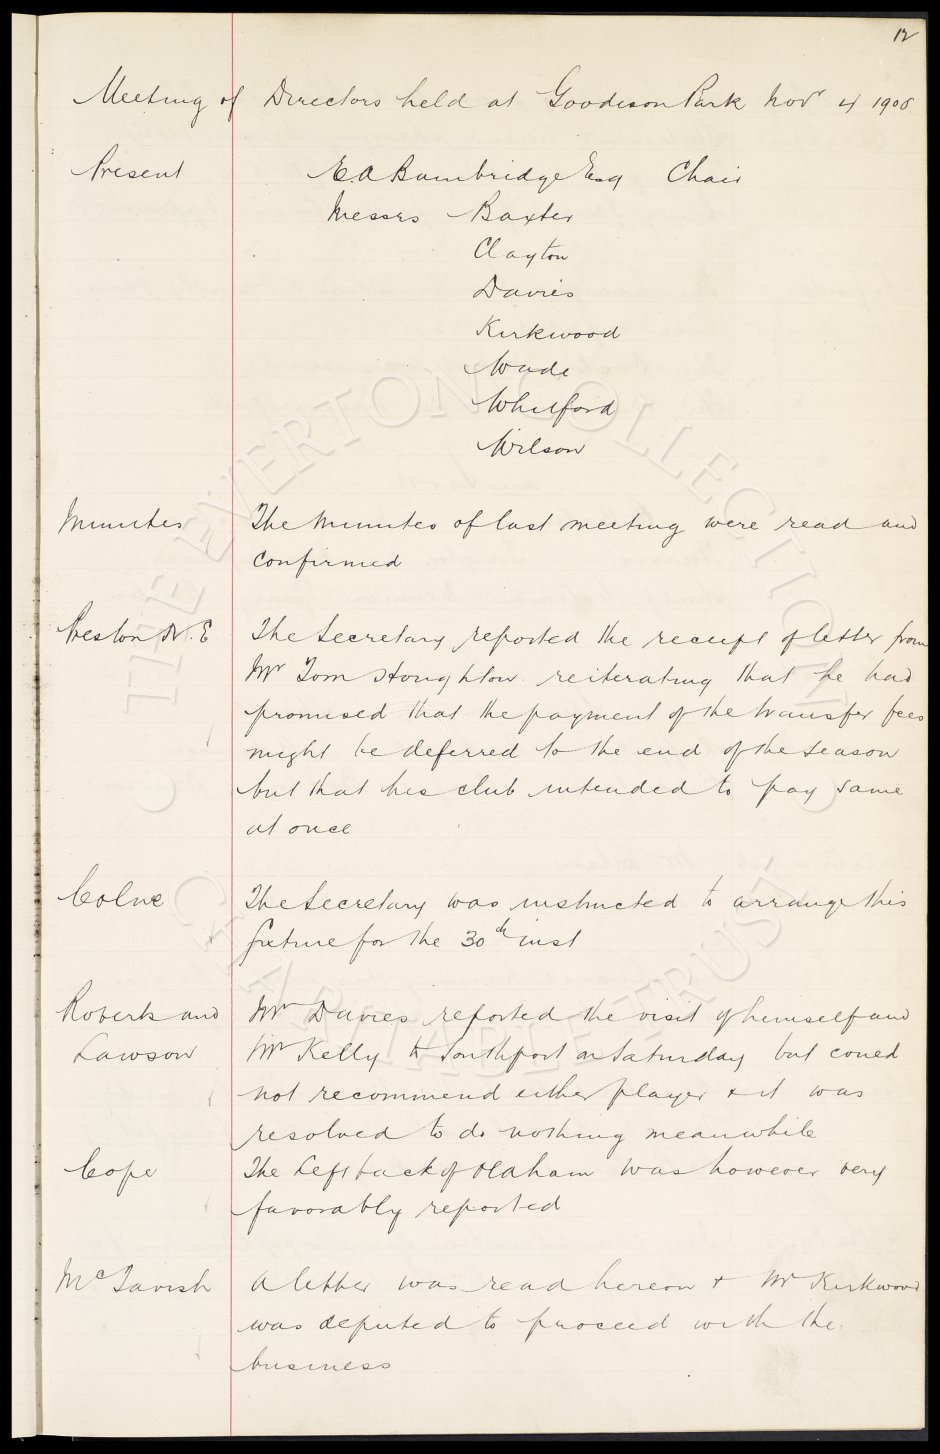 12
Meeting of Directors held at Goodison Park Novr 4 1908
Present E.A Bainbridge Esq Chair
Messrs Baxter
Clayton
Davies
Kirkwood
Wade
Whitford
Wilson
Minutes The Minutes of last meeting were read and
confirmed
Preston N.E The Secretary reported the receipt of letter from
Mr Tom Houghton reiterating that he had
promised that the payment of the transfer fees
might be deferred to the end of the season
but that his club intended to pay same
at once
Colne The Secretary was instructed to arrange this
fixture for the 30th inst
Roberts and Mr Davies reported the visit of himself and
Lawson Mr Kelly to Southport on Saturday but could
not recommend either player & it was
resolved to do nothing meanwhile
Cope The Left back of Oldham was however very
favorably reported
McTavish A letter was read hereon & Mr Kirkwood
was deputed to proceed with the
business
THE EVERTON COLLECTION
CHARITABLE TRUST